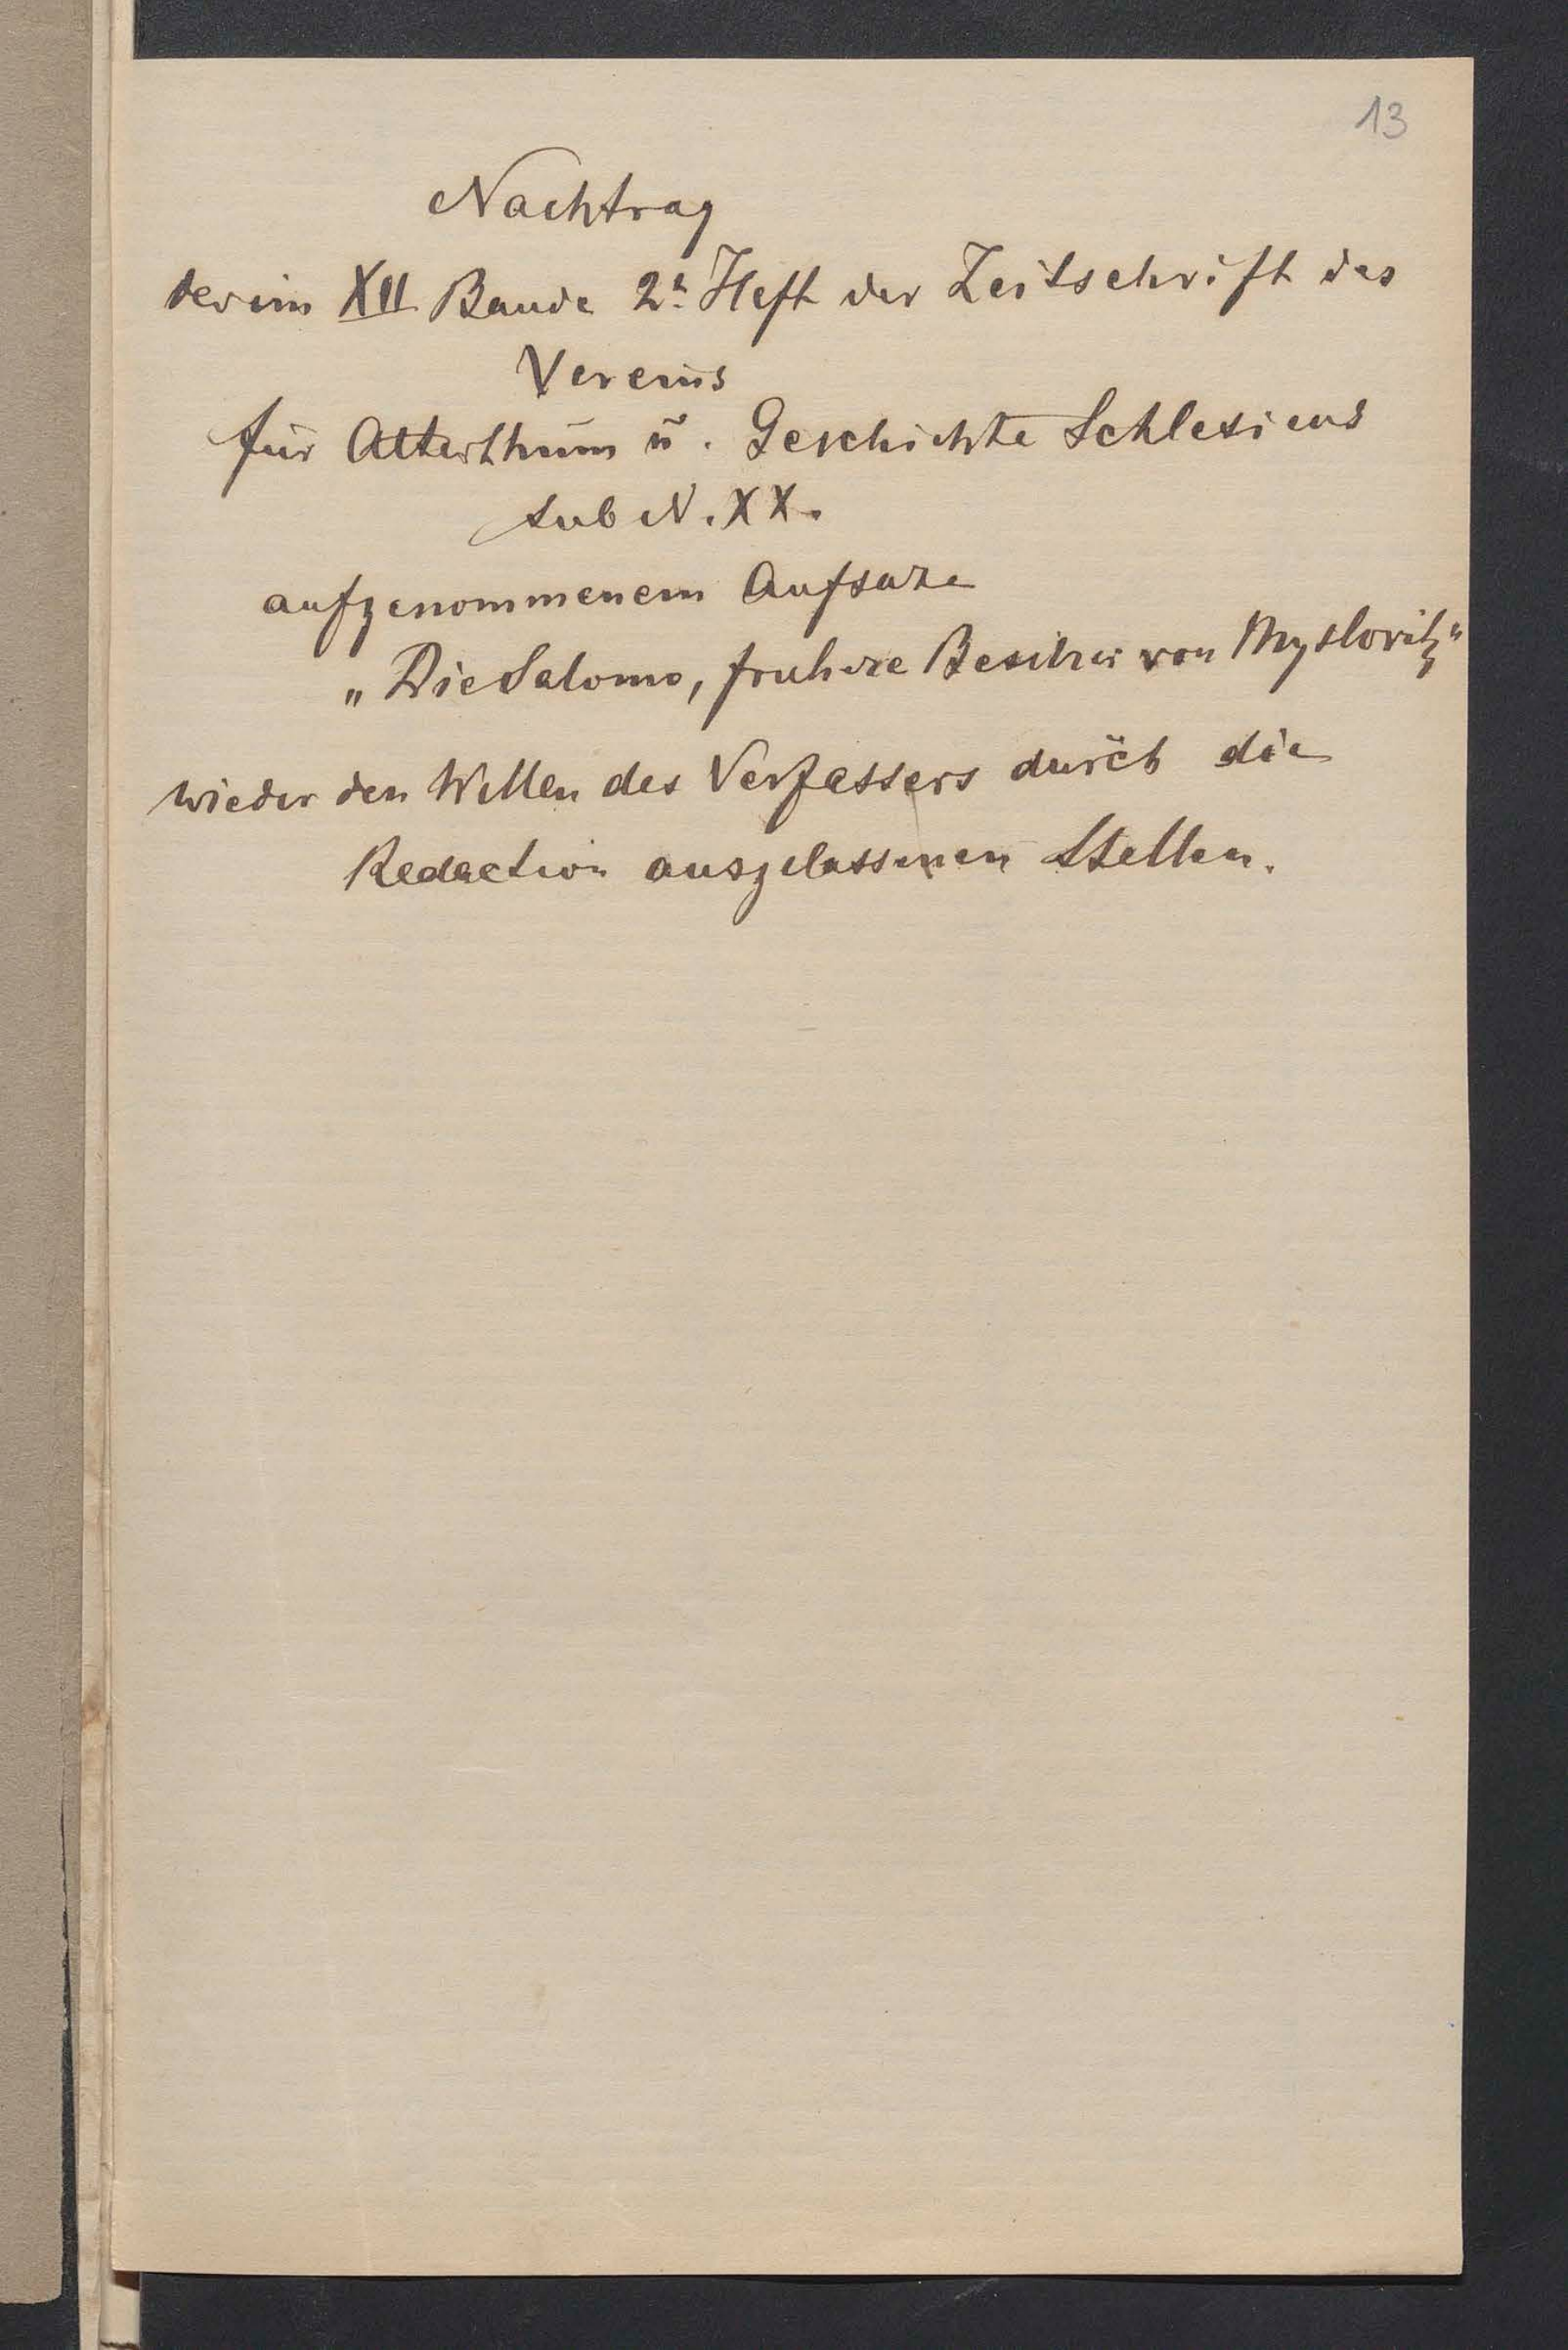 13
Nachtrag
der im XII Bande 2t Heft der Zeitschrift des
Vereins
für Alterthum u. Geschichte Schlesiens
sub N. XX.
aufgenommenem Aufsatze
„Die Salomo, fruhere Besitzer von Myslovitz"
wieder den Willen des Verfassers durch die
Redaction ausgelassenen Stellen.